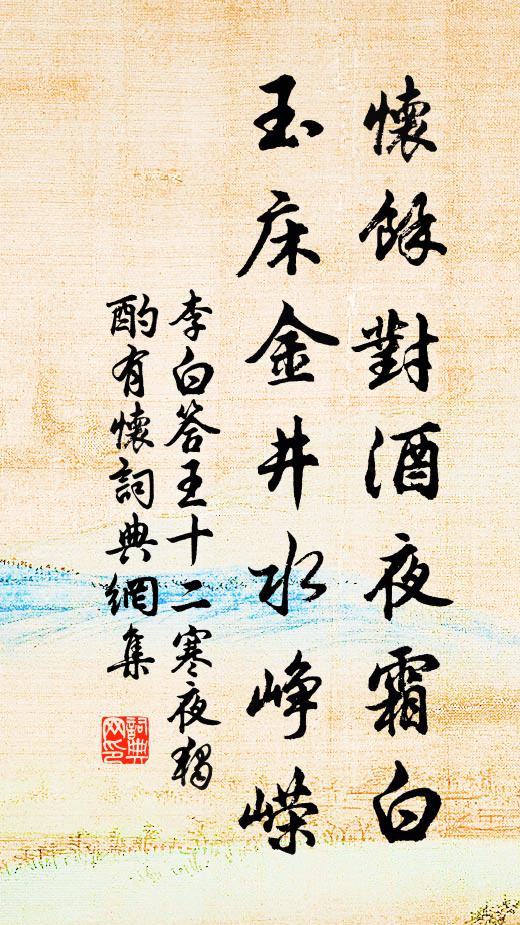 懷餘對酒夜霜白
玉床金井水崢嶸
李白答王十二寒夜獨
酌有懷詞典網集
詞典
网印